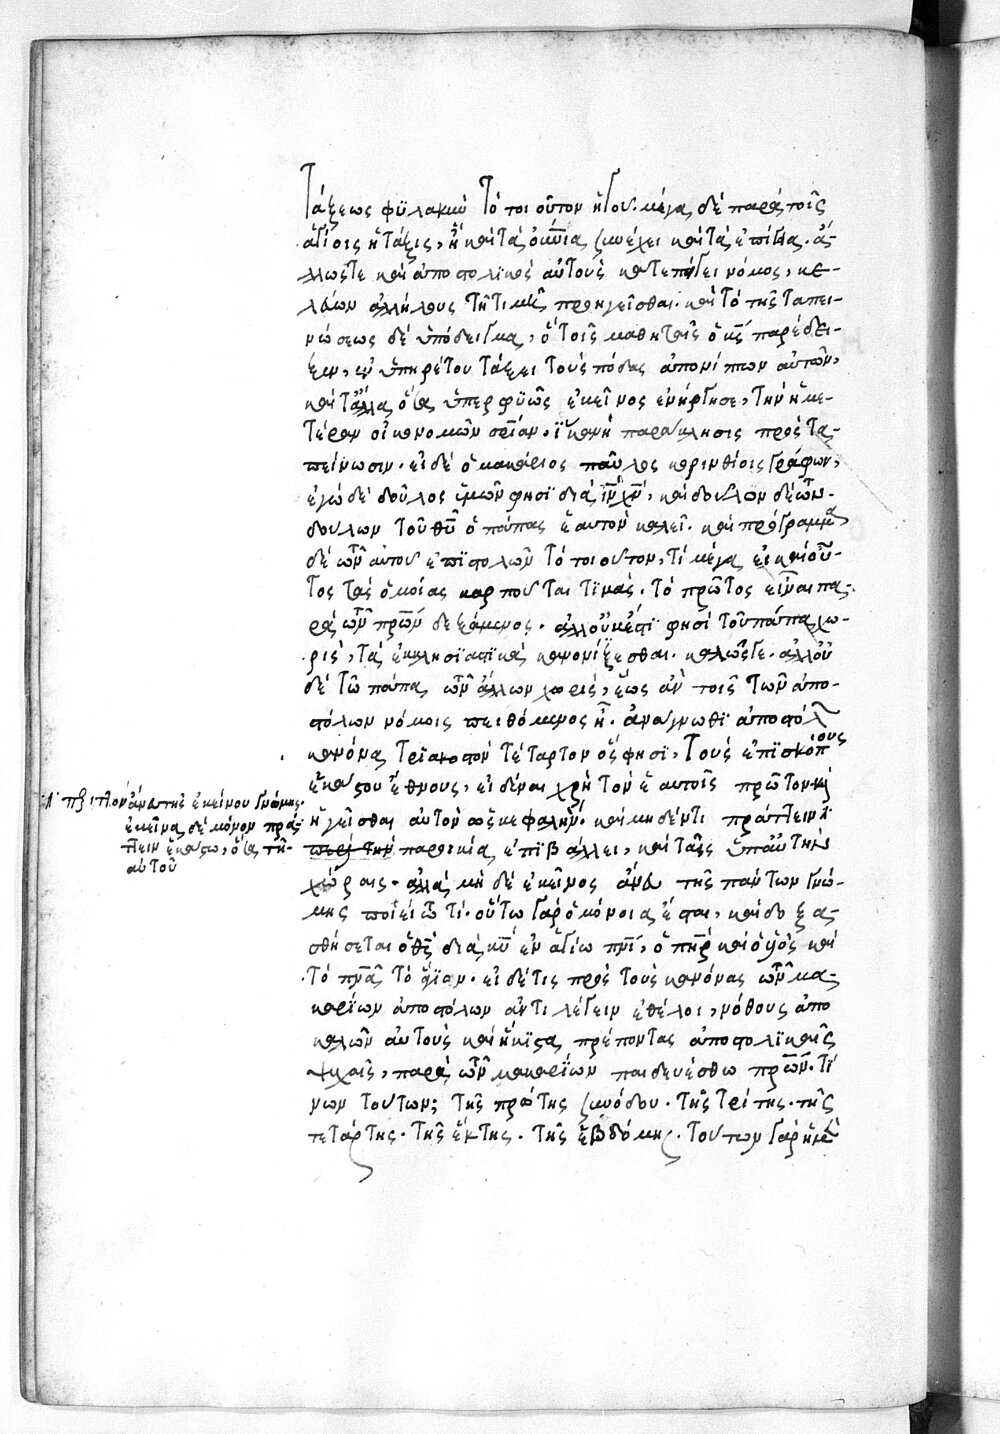 Τάξεως φϋλακὴ τὸ τοιοῦτον ἤγουν. μέγα δὲ παρὰ τοῖς
ἁγίοις ἡ τάξις, ἣ καὶ τὰ οὐράνια συνέχει καὶ τὰ ἐπίγεια. ἀ-
λλως τε καὶ ἀποστολικὸς αὐτοὺς κατεπείγει νόμος, κε-
λεύων ἀλλήλους τῇ τιμῇ προηγεῖσθαι. καὶ τὸ τῆς ταπει-
νώσεως δὲ ὑπόδειγμα, ὃ τοῖς μαθηταῖς ὁ κς παρέδει-
ξεν, ἐν ὑπηρέτου τάξει τοὺς πόδας ἀπονίπτων αὐτῶν,
καὶ τἄλλα ὅσα ὑπερφυῶς ἐκεῖνος ἐνήργησε, τὴν ἡμε-
τέραν οἰκονομῶν σρίαν, ἱκανὴ παράκλησις πρὸς τα-
πείνωσιν. εἰ δὲ ὁ μακάριος παῦλος κορινθίοις γράφων,
ἐγὼ δὲ δοῦλος ὑμῶν φησὶ διὰ ιν χν, καὶ δοῦλον δὲ τῶν
δούλων τοῦ θυ ὁ πάπας ἑαυτὸν καλεῖ. καὶ πρόγραμμα
δὲ τῶν αὐτοῦ ἐπιστολῶν τὸ τοιοῦτον, τί μέγα εἰ καὶ οὗ-
τος τὰς ὁμοίας καρποῦται τιμὰς. τὸ πρῶτος εἶναι πα-
ρὰ τῶν πρων δεξάμενος. ἀλλ' οὐκ ἔστι φησὶ τοῦ πάπα χω-
ρὶς, τὰ ἐκκλησιαστικὰ κανονίζεσθαι. καλῶς γε. ἀλλ' οὐ
δὲ τῷ πάπα τῶν ἄλλων χωρὶς, ἕως ἂν τοῖς τῶν ἀπο-
στόλων νόμοις πειθόμενος ᾖ. ἀνάγνωθι ἀποστολ
κανόνα τριακοστὸν τέταρτον ὅς φησι, τοὺς ἐπισκόπους
ἑκάστου ἔθνους, εἰδέναι χρὴ τὸν ἑαυτοῖς πρῶτον καὶ
ἡγεῖσθαι αὐτὸν ὡς κεφαλὴν. καὶ μηδέν τι πράττειν
λ' περιττὸν ἄνευ τῆς ἐκείνου γνώμης.
ἐκεῖνα δὲ μόνον πρά-
ττειν ἕκαστον, ὅσα τῇ
αὐτοῦ
περὶ τὴν παροικία ἐπιβάλλει, καὶ ταῖς ὑπ' αὐτὴν
χώραις. ἀλλὰ μὴ δὲ ἐκεῖνος ἄνευ τῆς πάντων γνώ-
μης ποιείτω τί. οὕτω γὰρ ὁμόνοια ἔσται, καὶ δοξα-
σθήσεται ὁ θς διὰ κυ ἐν ἁγίω πνι, ὁ πηρ καὶ ὁ υἱὸς καὶ
τὸ πνα τὸ ἅγιον. εἰ δέ τις πρὸς τοὺς κανόνας τῶν μα-
καρίων ἀποστόλων ἀντιλέγειν ἐθέλοι, νόθους ἀπο
καλῶν αὐτοὺς καὶ ἥκιστα πρέποντας ἀποστολικαῖς
ψυχαῖς, παρὰ τῶν μακαρίων παιδευέσθω πρων. τί
νων τούτων; τῆς πρώτης συνόδου. τῆς τρίτης. τῆς
τετάρτης. τῆς ἕκτης. τῆς ἑβδόμης. τούτων γὰρ ἡ μὲν